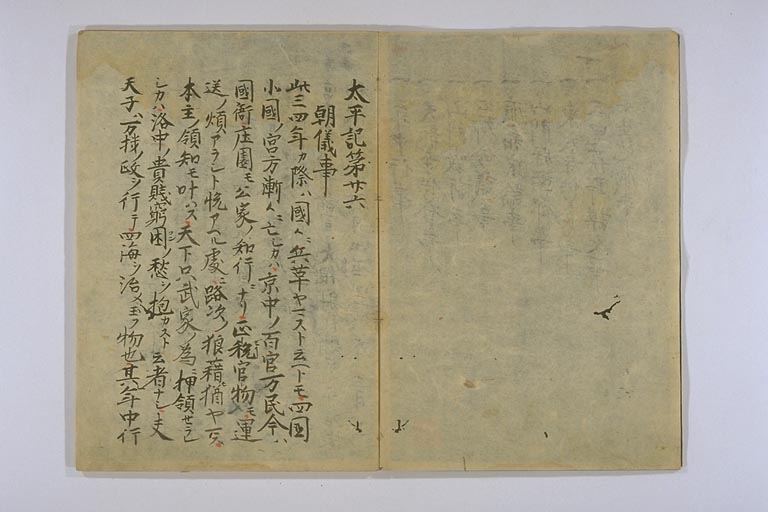 太平記第廿六
朝儀事
此三四年カ際ハ國々ニ兵革ヤマスト云ヘトモ四國
小國ノ宮方漸々ニ亡シカハ京中ノ百官万民今ハ
國衙庄園モ公家ノ知行ニナリ正税官物モ運
送ノ煩アラント悦アヘル處ニ路次ノ狼藉猶ヤマス
本主ノ領知モ叶ハス天下只武家ノ為ニ押領セラレ
シカハ洛中ノ貴賤窮困ノ愁ヲ抱カスト云者ナシ夫
天子ハ万機ノ政ヲ行テ四海ヲ治メ玉フ物也其年中行